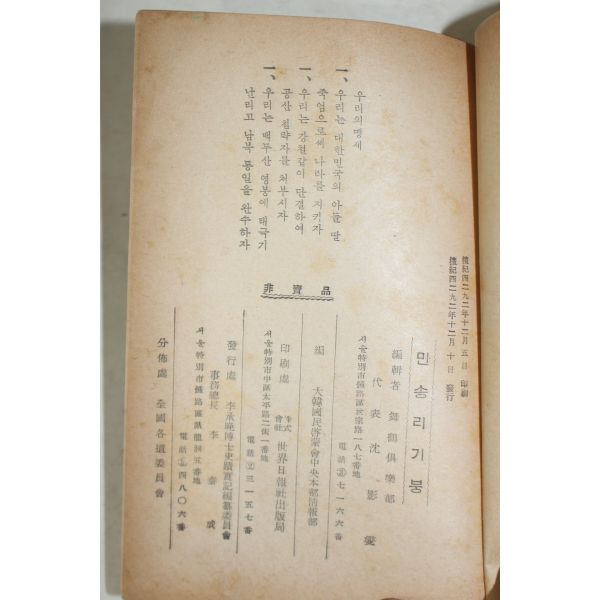 우리의 맹세
一、우리는 대한민국의 아들 딸
죽엄으로써 나라를 지키자
一、우리는 강철같이 단결하여
공산 침략자를 처부시자
一、우리는 백두산 영봉에 태극기
난리고 남북 통일을 완수하자
非賣品
檀紀四二九二年十二月五日 印刷
檀紀四二九二年十二月十日 發行
만송 리기붕
編輯者 舞鶴俱樂部
代表 沈影燮
서울特別市鍾路區世宗路一八七番地
電話③七一六六番
編 大韓國民啓蒙會中央本部情報部
印刷處 株式會社 世界日報社出版局
서울特別市中區太平路二街一番地
電話②三一五七番
發行處 李承晩博士史蹟實記編纂委員會
事務總長 李泰成
서울特別市鍾路區臥龍洞五番地
電話③四八〇六番
分佈處 全國各道委員會